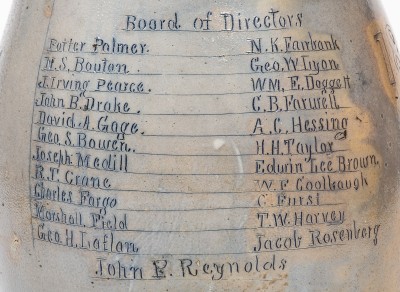 Board of Directors
Potter Palmer. N.K. Fairbank
N.S. Bouton. Geo. W. Lyon
J. Irving Pearce. WM. E. Doggett
John B. Drake. C.B. Farwell
David A. Gage. A.C. Hessing
Geo. S. Bowen. H.H. Taylor
Joseph Medill Edwin Lee Brown.
R.T. Crane W.F. Coolbaugh
Charles Fargo C. Furst
Marshall Field T.W. Harvey
Geo. H. Laflan Jacob Rosenberg
John P. Reynolds